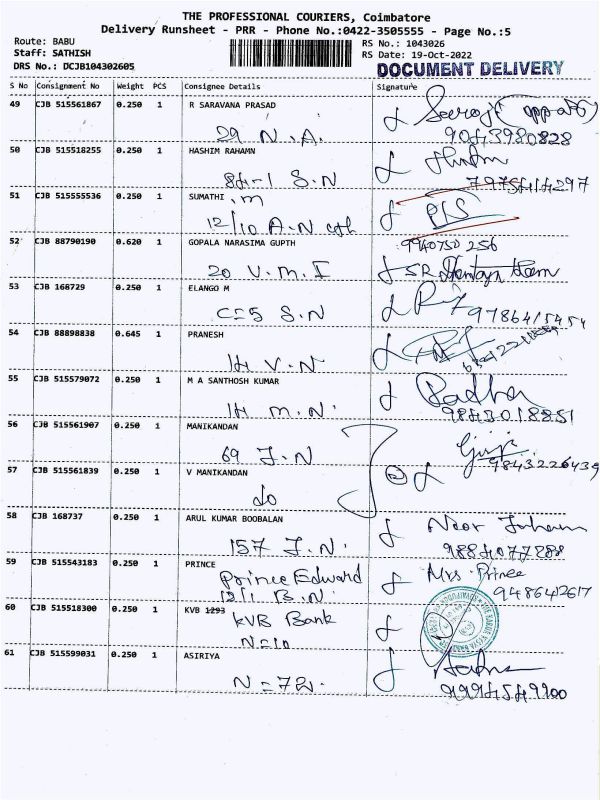 THE PROFESSIONAL COURIERS, Coimbatore
Delivery Runsheet - PRR - Phone No.:0422-3505555 - Page No.:5
Route: BABU
Staff: SATHISH
DRS No.: DCJB104302605
RS No.: 1043026
RS Date: 19-Oct-2022
DOCUMENT DELIVERY
S No Consignment No Weight PCS Consignee Details Signature
49 CJB 515561867 0.250 1 R SARAVANA PRASAD
29 N.A.
9043980828
50 CJB 515518255 0.250 1 HASHIM RAHAMN
84-1 S.N
7975414297
51 CJB 515555536 0.250 1 SUMATHI .m
12/10 A.N
52 CJB 88790190 0.620 1 GOPALA NARASIMA GUPTH
9940750256
20 V.M.I
53 CJB 168729 0.250 1 ELANGO M
C=5 S.N
54 CJB 88898838 0.645 1 PRANESH
14 V.N
55 CJB 515579072 0.250 1 M A SANTHOSH KUMAR
14 M.N. Radha
9843018851
56 CJB 515561907 0.250 1 MANIKANDAN
69 J.N
9843226439
57 CJB 515561839 0.250 1 V MANIKANDAN
do
58 CJB 168737 0.250 1 ARUL KUMAR BOOBALAN
157 J.N.
9884077288
59 CJB 515543183 0.250 1 PRINCE
Prince Edward Mrs. Prince
12/1 B.N.948642617
60 CJB 515518300 0.250 1 KVB 1293
KVB Bank
N=10
61 CJB 515599031 0.250 1 ASIRIYA
N=72.
9994549900